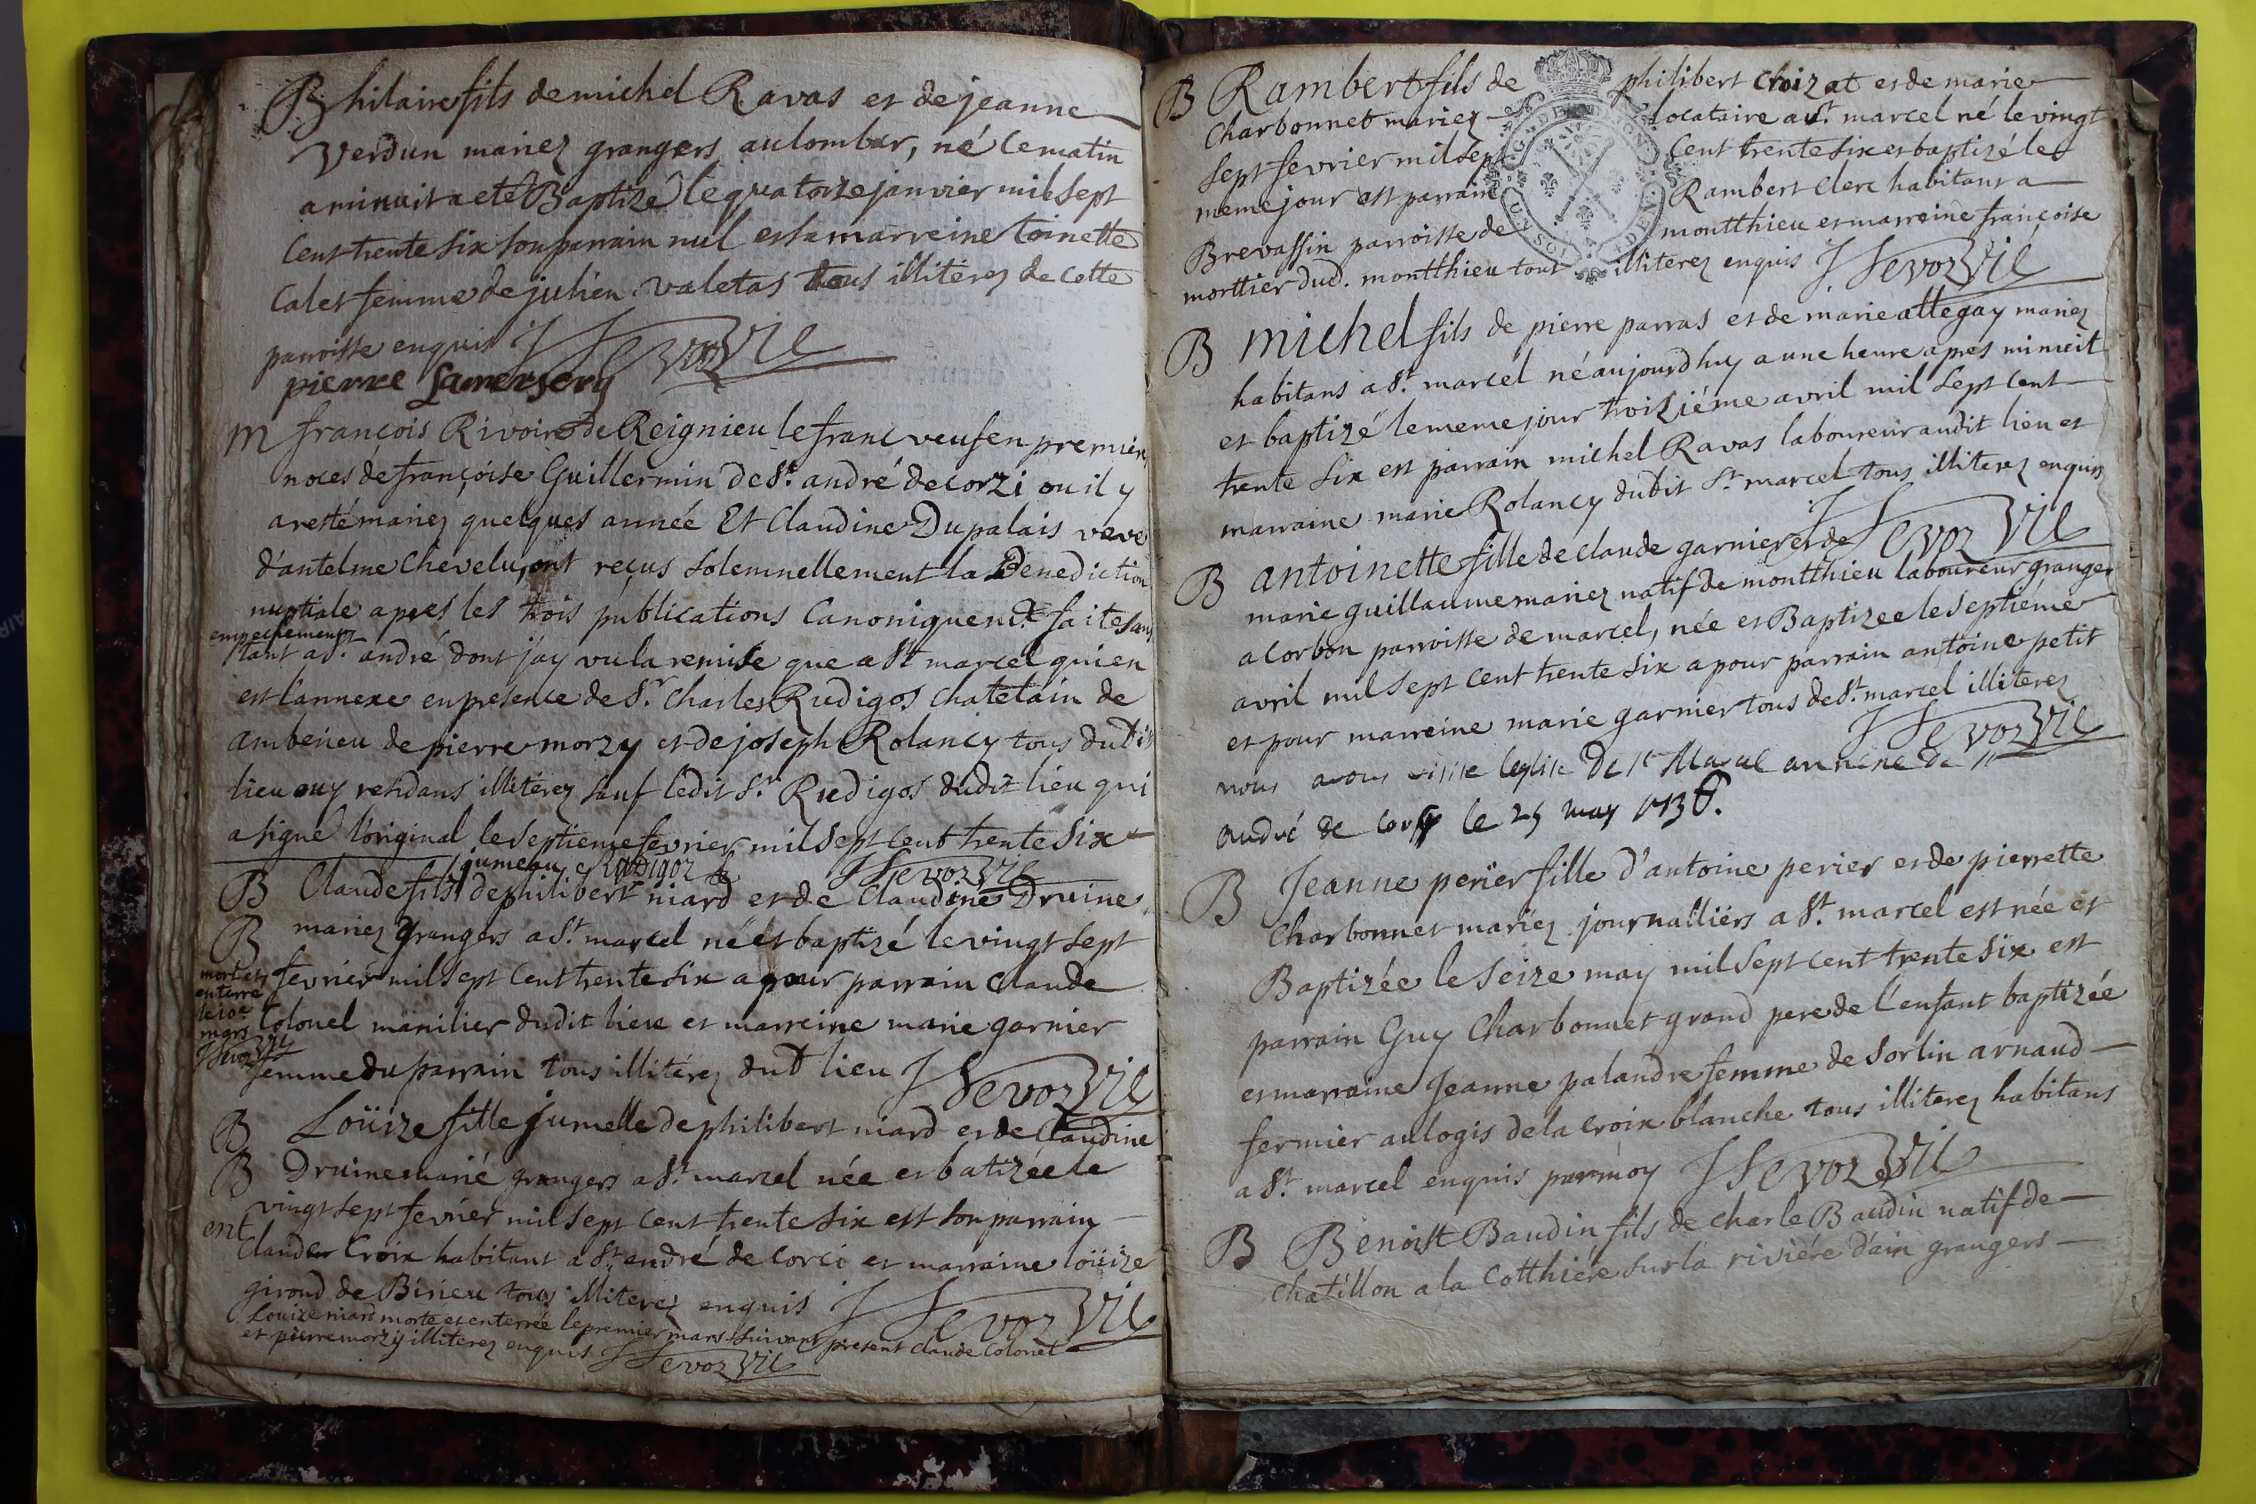 B hilaire fils de michel Ravas et de jeanne
Verdun mariez grangers au lombar, né ce matin
a minuit a eté Baptizé le quatorze janvier mil sept
Cent trente six son parrain nul est sa marreine toinette
Calet femme de julien valetas tous illitérez de cette
parroisse enquis J Sevoz Vic
pierre
M françois Rivoire de Reignieu le franc veuf en premiere
noces de françoise Guillermin de St. andré de corzi ou il y
a resté mariez quelques année Et Claudine Dupalais veve
d'antelme Chevelu, ont reçus solemnellement la Benediction
nuptiale apres les trois publications Canoniquem.t faite sans
empechement
tant a St. andré dont j'ay vu la remise que a St marcel qui en
est l'annexe en presence de Sr. Charles Rudigos Chatelain de
amberieu de pierre morzy et de joseph Rolancy tous dudit
lieu ouy rendans illitérez sauf ledit Sr. Rudigos dudit lieu qui
a signé l'original le septieme fevrier mil sept cent trente six
Rudigoz J Sevoz Vic
jumeau
B Claude fils de philibert niard et de Claudine Druine
B mariez grangers a St. marcel né et baptizé le vingt sept
fevrier mil sept cent trente six a pour parrain Claude
Colonel manilier dudit lieu et marreine marie garnier
femme du parrain tous illitérez dud lieu J Sevoz Vic
mort et
enterré
le 10e
mars
J Sevoz Vic
B Loüize fille jumelle de philibert niard et de Claudine
B Druine marié grangers a St. marcel née et batizée le
vingt sept fevrier mil sept cent trente six est son parrain
ent
Claude Croix habitant a St. andré de corci et marraine loüize
giroud de Birieu tous illiterez enquis J Sevoz Vic
Louize niard morte et enterrée le premier mars suivant present Claude Colonel
et pierre morzy illiterez enquis J Sevoz Vic
B Rambert fils de philibert Croizat et de marie
Charbonnet mariez locataire a St. marcel né le vingt
sept fevrier mil sept Cent trente six et baptizé le
meme jour est parrain Rambert Clerc habitant a
Brevassin parroisse de montthieu et marreine françoise
morttier dud. montthieu tout illiterez enquis J Sevoz Vic
B michel fils de pierre parras et de marie attegay mariez
habitans a St. marcel né aujourdhuy a une heure apres minuit
et baptizé le meme jour troiziéme avril mil sept cent
trente six est parrain michel Ravas laboureur audit lieu et
marraine marie Rolancy dudit St. marcel tous illiterez enquis
J Sevoz Vic
B antoinette fille de claude garnier et de
marie guillaume mariez natif de montthieu laboureur granger
a Corbon parroisse de marcel, née et Baptizee le septiéme
avril mil sept cent trente six a pour parrain antoine petit
et pour marreine marie garnier tous de St. marcel illiterez
J Sevoz Vic
nous avons visité leglise De St Marcel annexe de St
andré de corsy le 25 may 1736.
B Jeanne perier fille d'antoine perier et de pierrette
Charbonnet mariez journalliérs a St. marcel est née et
Baptizée le seize may mil sept cent trente six est
parrain Guy Charbonnet grand pere de l'enfant baptizée
et marraine Jeanne palandre femme de Sorlin arnaud
fermier au logis de la croix blanche tous illiterez habitans
a St. marcel enquis par moy J Sevoz Vic
B Benoist Baudin fils de charle Baudin natif de
chatillon a la Cotthiére sur la riviére d'ain grangers